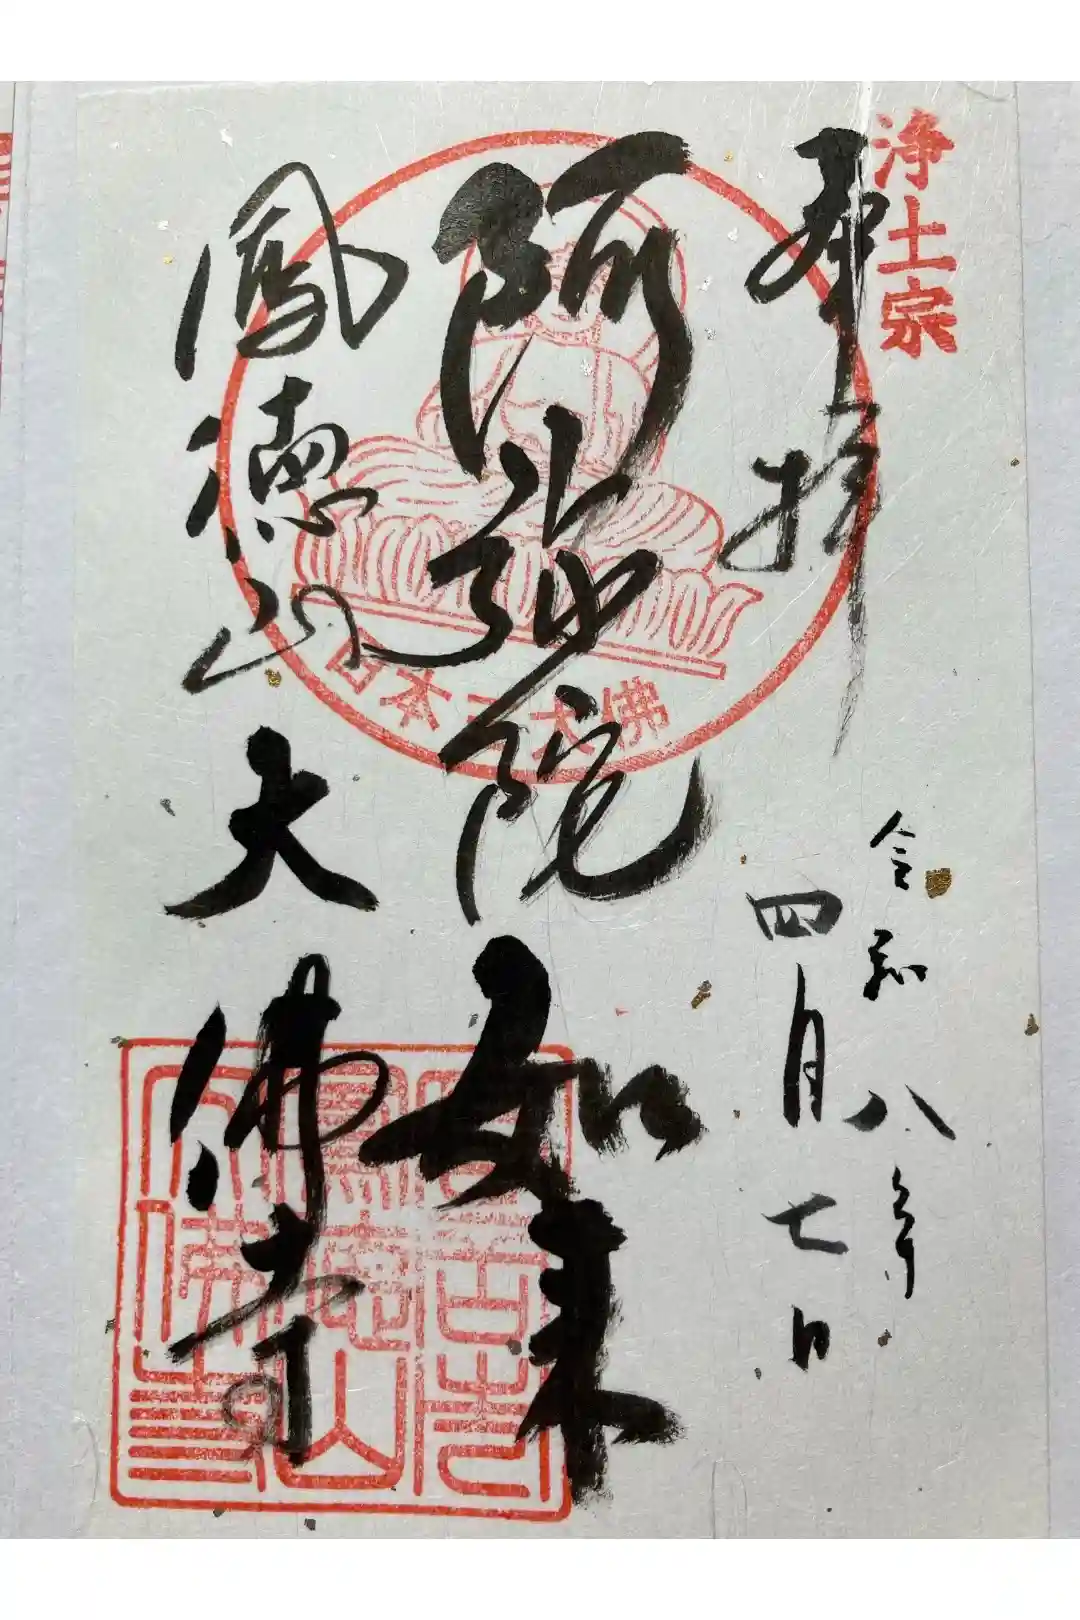 浄土宗
奉拝
令和八年
四月七日
阿弥陀如来
日本三大佛
鳳徳山
大佛寺